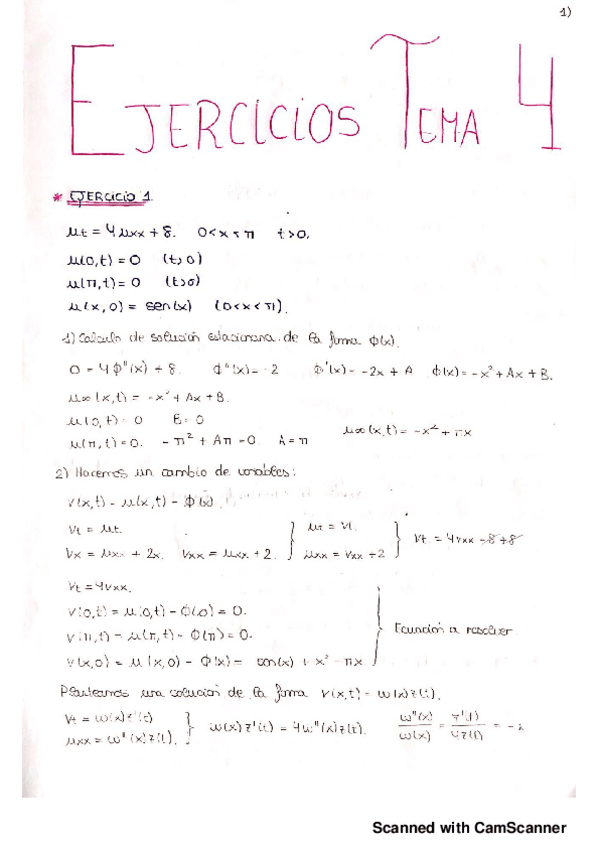 1)
EJERCICIOS TEMA 4
* EJERCICIO 1
ut = 4uxx + 8. 0<x<π t>0.
u(0,t) = 0 (t>0)
u(π,t) = 0 (t>0)
u(x,0) = sen(x) (0<x<π).
1) Calculo de solución estacionaria de la forma ϕ(x).
0 = 4ϕ''(x) + 8. ϕ''(x) = -2 ϕ'(x) = -2x + A ϕ(x) = -x² + Ax + B.
u∞(x,t) = -x² + Ax + B.
u(0,t) = 0 B = 0
u(π,t) = 0. -π² + Aπ = 0 A = π u∞(x,t) = -x² + πx
2) Hacemos un cambio de variables:
v(x,t) = u(x,t) - ϕ(x).
vt = ut. ut = vt.
vx = uxx + 2x. vxx = uxx + 2. uxx = vxx - 2 vt = 4vxx -8+8
vt = 4vxx.
v(0,t) = u(0,t) - ϕ(0) = 0.
v(π,t) = u(π,t) - ϕ(π) = 0. Ecuación a resolver
v(x,0) = u(x,0) - ϕ(x) = sen(x) + x² - πx
Planteamos una solución de la forma v(x,t) = w(x)z(t).
vt = w(x)z'(t)
uxx = w''(x)z(t). w(x)z'(t) = 4w''(x)z(t). w''(x)/w(x) = z'(t)/4z(t) = -λ
Scanned with CamScanner